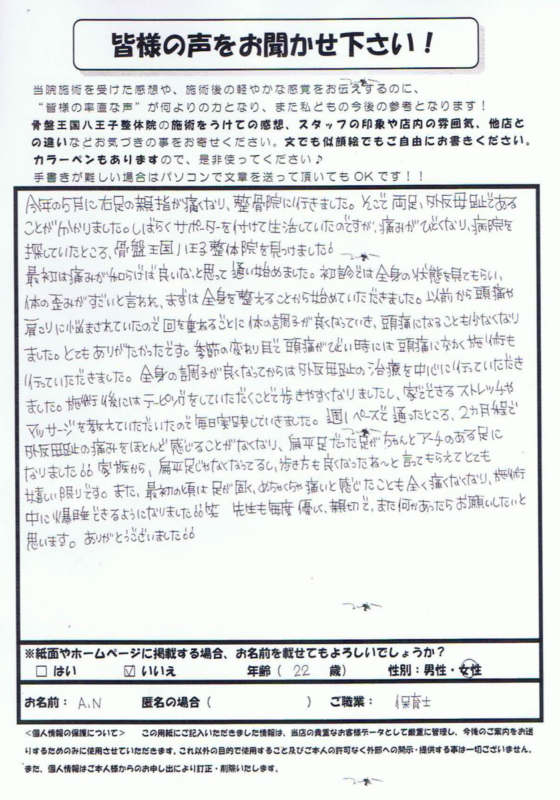 皆様の声をお聞かせ下さい！
当院施術を受けた感想や、施術後の軽やかな感覚をお伝えするのに、
“皆様の率直な声”が何よりの力となり、また私どもの今後の参考となります！
骨盤王国八王子整体院の施術をうけての感想、スタッフの印象や店内の雰囲気、他店と
の違いなどお気づきの事をお寄せください。文でも似顔絵でもご自由にお書きください。
カラーペンもありますので、是非使ってください♪
手書きが難しい場合はパソコンで文章を送って頂いてもOKです！！
今年の5月に右足の親指が痛くなり、整骨院に行きました。そこで両足、外反母趾である
ことが分かりました。しばらくサポーターを付けて生活していたのですが、痛みがひどくなり、病院を
探していたところ、骨盤王国八王子整体院を見つけました。
最初は痛みが和らげば良いな、と思って通い始めました。初診では全身の状態を見てもらい、
体の歪みがすごいと言われ、まずは全身を整えることから始めていただきました。以前から頭痛や
肩こりに悩まされていたので回を重ねるごとに体の調子が良くなっていき、頭痛になることも少なくなり
ました。とてもありがたかったです。季節の変わり目で頭痛がひどい時には頭痛に効く施術も
行っていただきました。全身の調子が良くなってからは外反母趾の治療を中心に行っていただき
ました。施術後にはテーピングをしていただくことで歩きやすくなりましたし、家でできるストレッチや
マッサージを教えていただいたので毎日実践していきました。週1ペースで通ったところ、2カ月程で
外反母趾の痛みをほとんど感じることがなくなり、扁平足だった足がちゃんとアーチのある足に
なりました!! 家族から、扁平足じゃなくなってるし、歩き方も良くなったね〜と言ってもらえてとても
嬉しい限りです。また、最初の頃は足が固く、めちゃくちゃ痛いと感じたことも全く痛くなくなり、施術
中に爆睡できるようになりました!!笑 先生も毎度優しく、親切で、また何かあったらお願いしたいと
思います。ありがとうございました!!
※紙面やホームページに掲載する場合、お名前を載せてもよろしいでしょうか？
□ はい ☑ いいえ 年齢（ 22 歳） 性別：男性・女性
お名前： A.N 匿名の場合（ ） ご職業： 保育士
＜個人情報の保護について＞ この用紙にご記入いただきました情報は、当店の貴重なお客様データとして厳重に管理し、今後のご案内をお送
りするためのみに使用させていただきます。これ以外の目的で使用すること及びご本人の許可なく外部への開示・提供する事は一切ございません。
また、個人情報はご本人様からのお申し出により訂正・削除いたします。